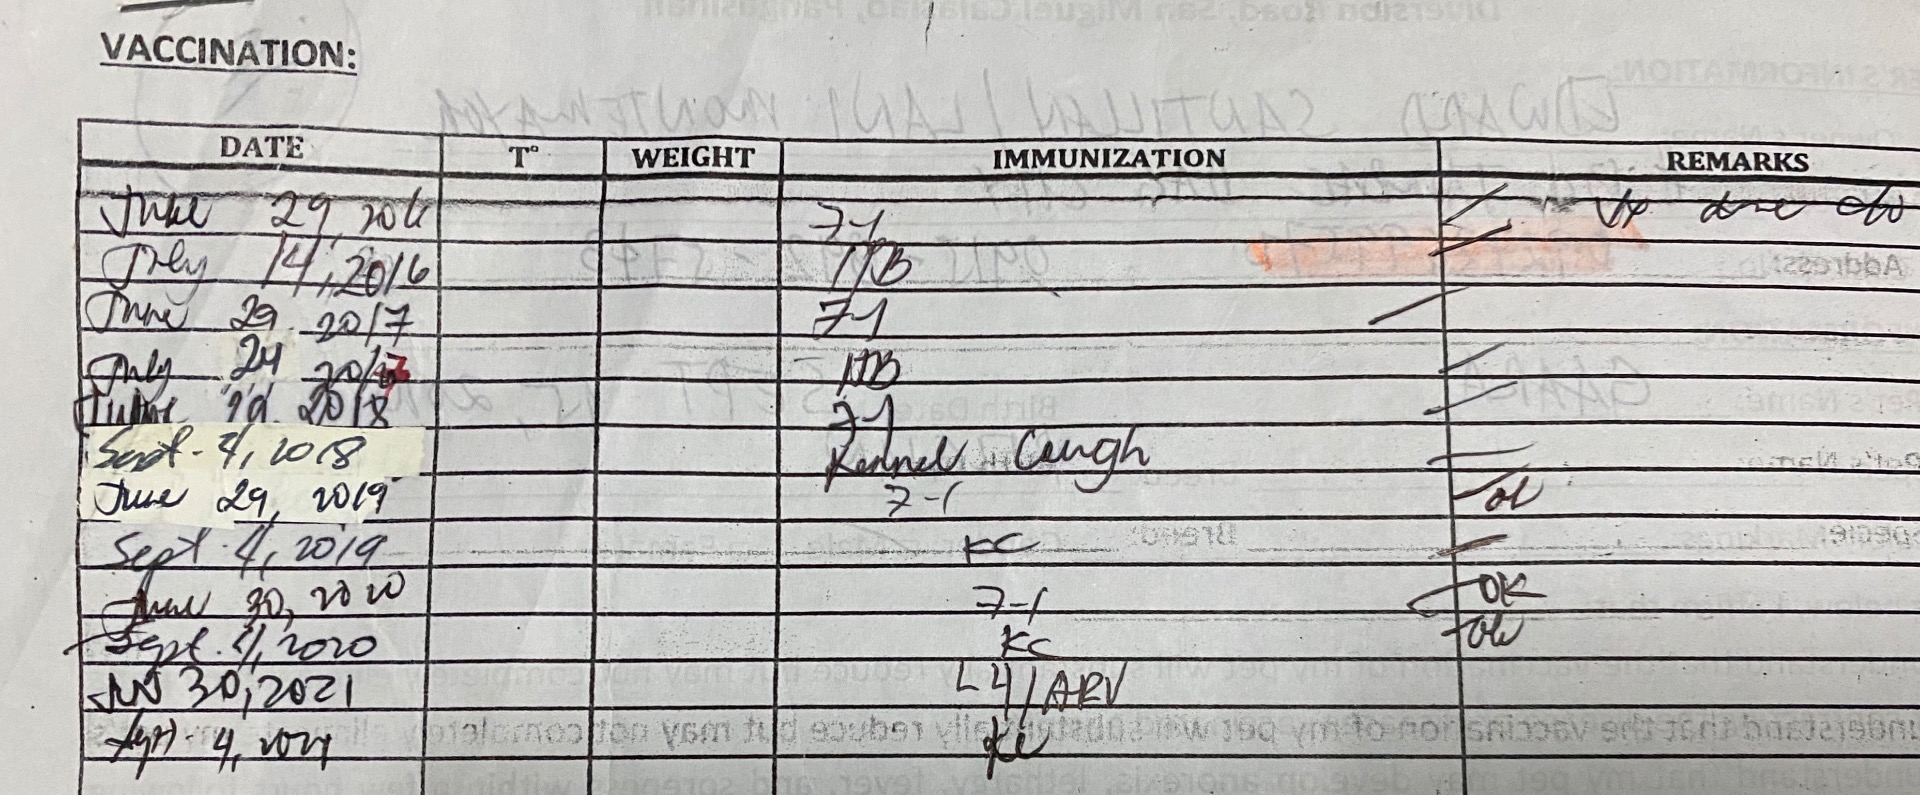 VACCINATION:
DATE T° WEIGHT IMMUNIZATION REMARKS
June 29, 2016 7-1
July 14, 2016
June 29 2017 7-1
July 24 2017
June 2018 7-1
Sept. 4, 2018 Kennel Cough
June 29, 2019 7-1 ok
Sept. 4, 2019 KC
June 30, 2020 7-1 OK
Sept. 4, 2020 KC ok
JUN 30, 2021 L4/ARV
Sept. 4, 2021 KC